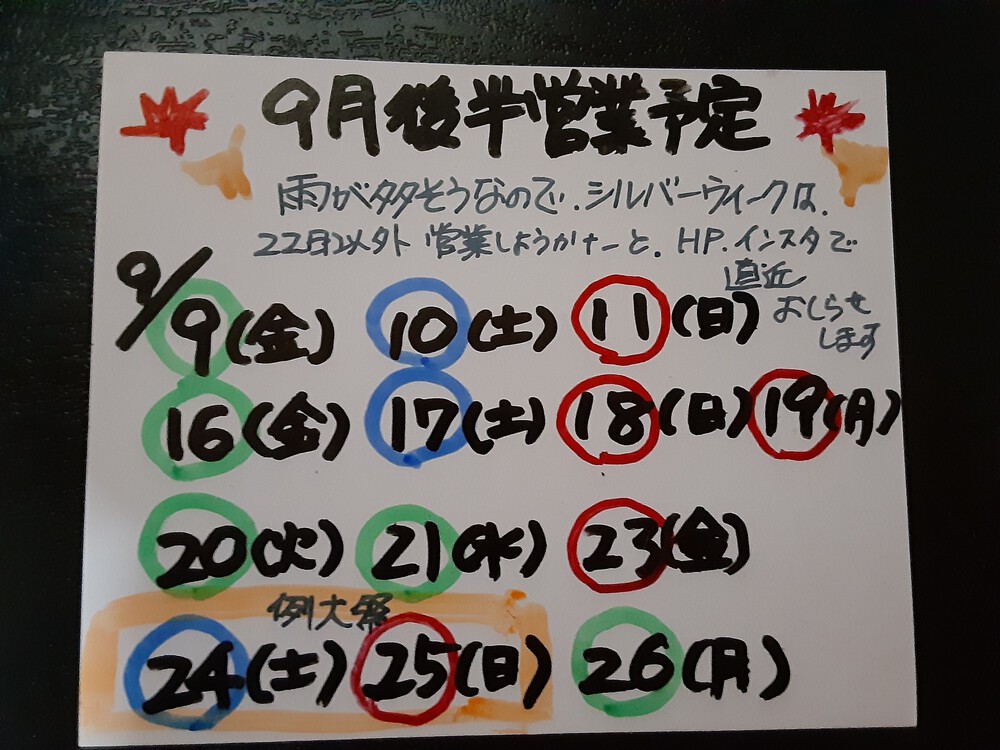 9月後半営業予定
雨が多そうなので.シルバーウィークは.
22日以外 営業しようかなーと. HP.インスタで
直近
おしらせ
します
9/9(金) 10(土) 11(日)
16(金) 17(土) 18(日) 19(月)
20(火) 21(水) 23(金)
例大祭
24(土) 25(日) 26(月)